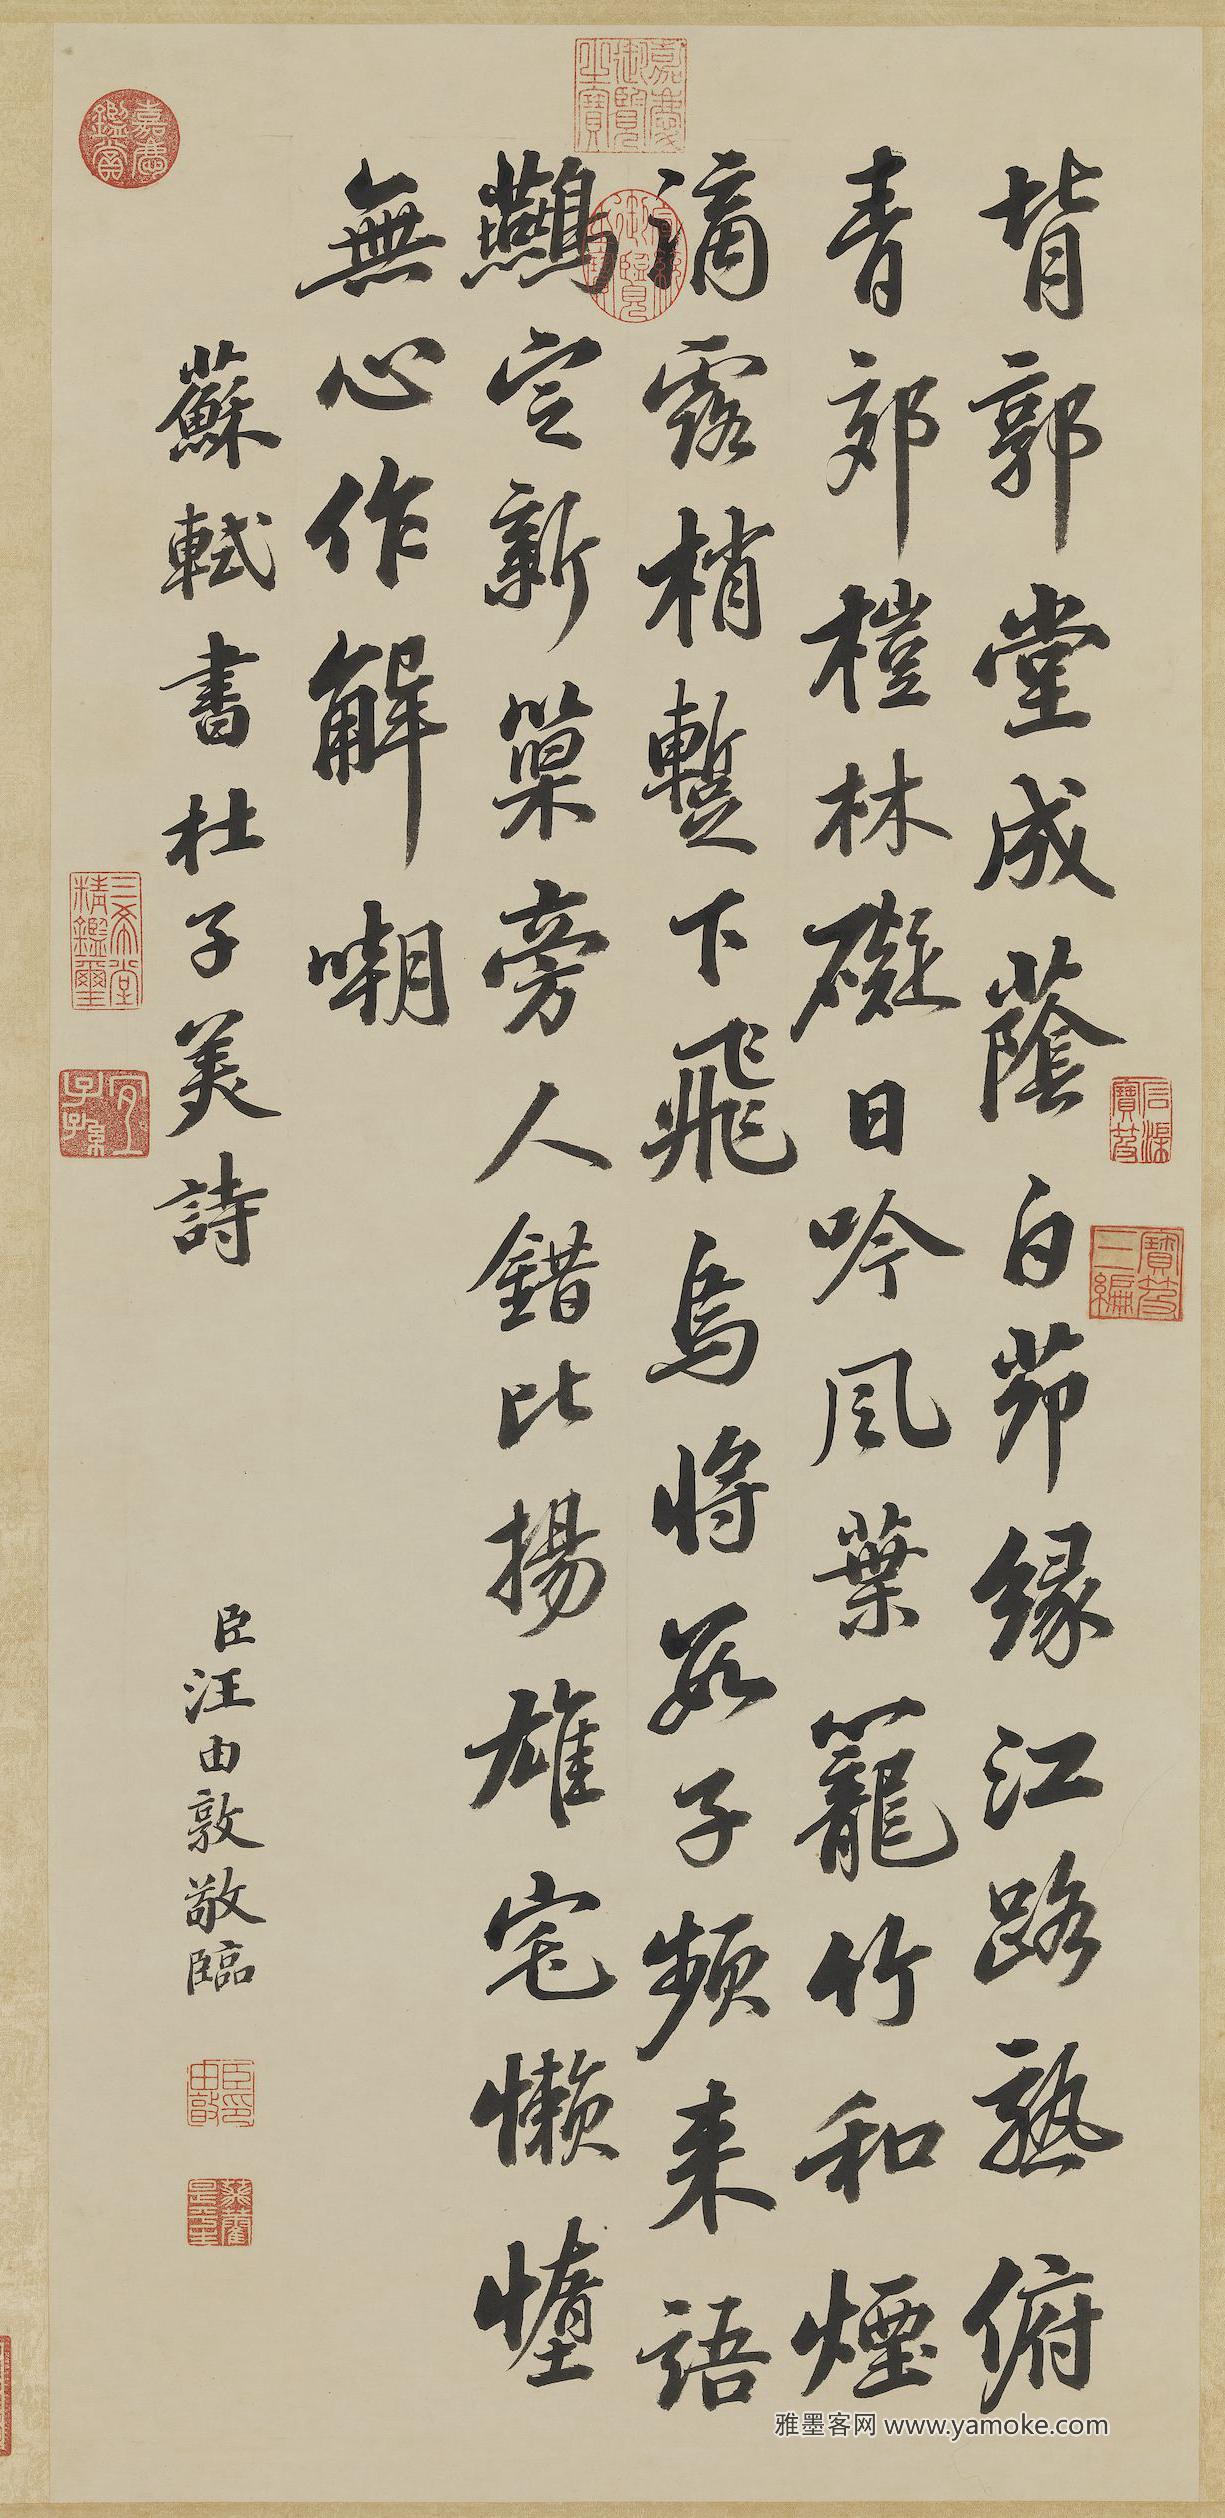 背郭堂成蔭白茆緣江路熟俯
青郊榿林礙日吟風葉籠竹和煙
滴露梢蹔下飛烏將數子頻來語
鷰定新巢旁人錯比揚雄宅懶墯
無心作解嘲
蘇軾書杜子美詩
臣汪由敦敬臨
嘉慶御覽之寶
嘉慶鑑賞
三希堂精鑑璽
宜子孫
石渠寶笈
寶笈三編
雅墨客网 www.yamoke.com